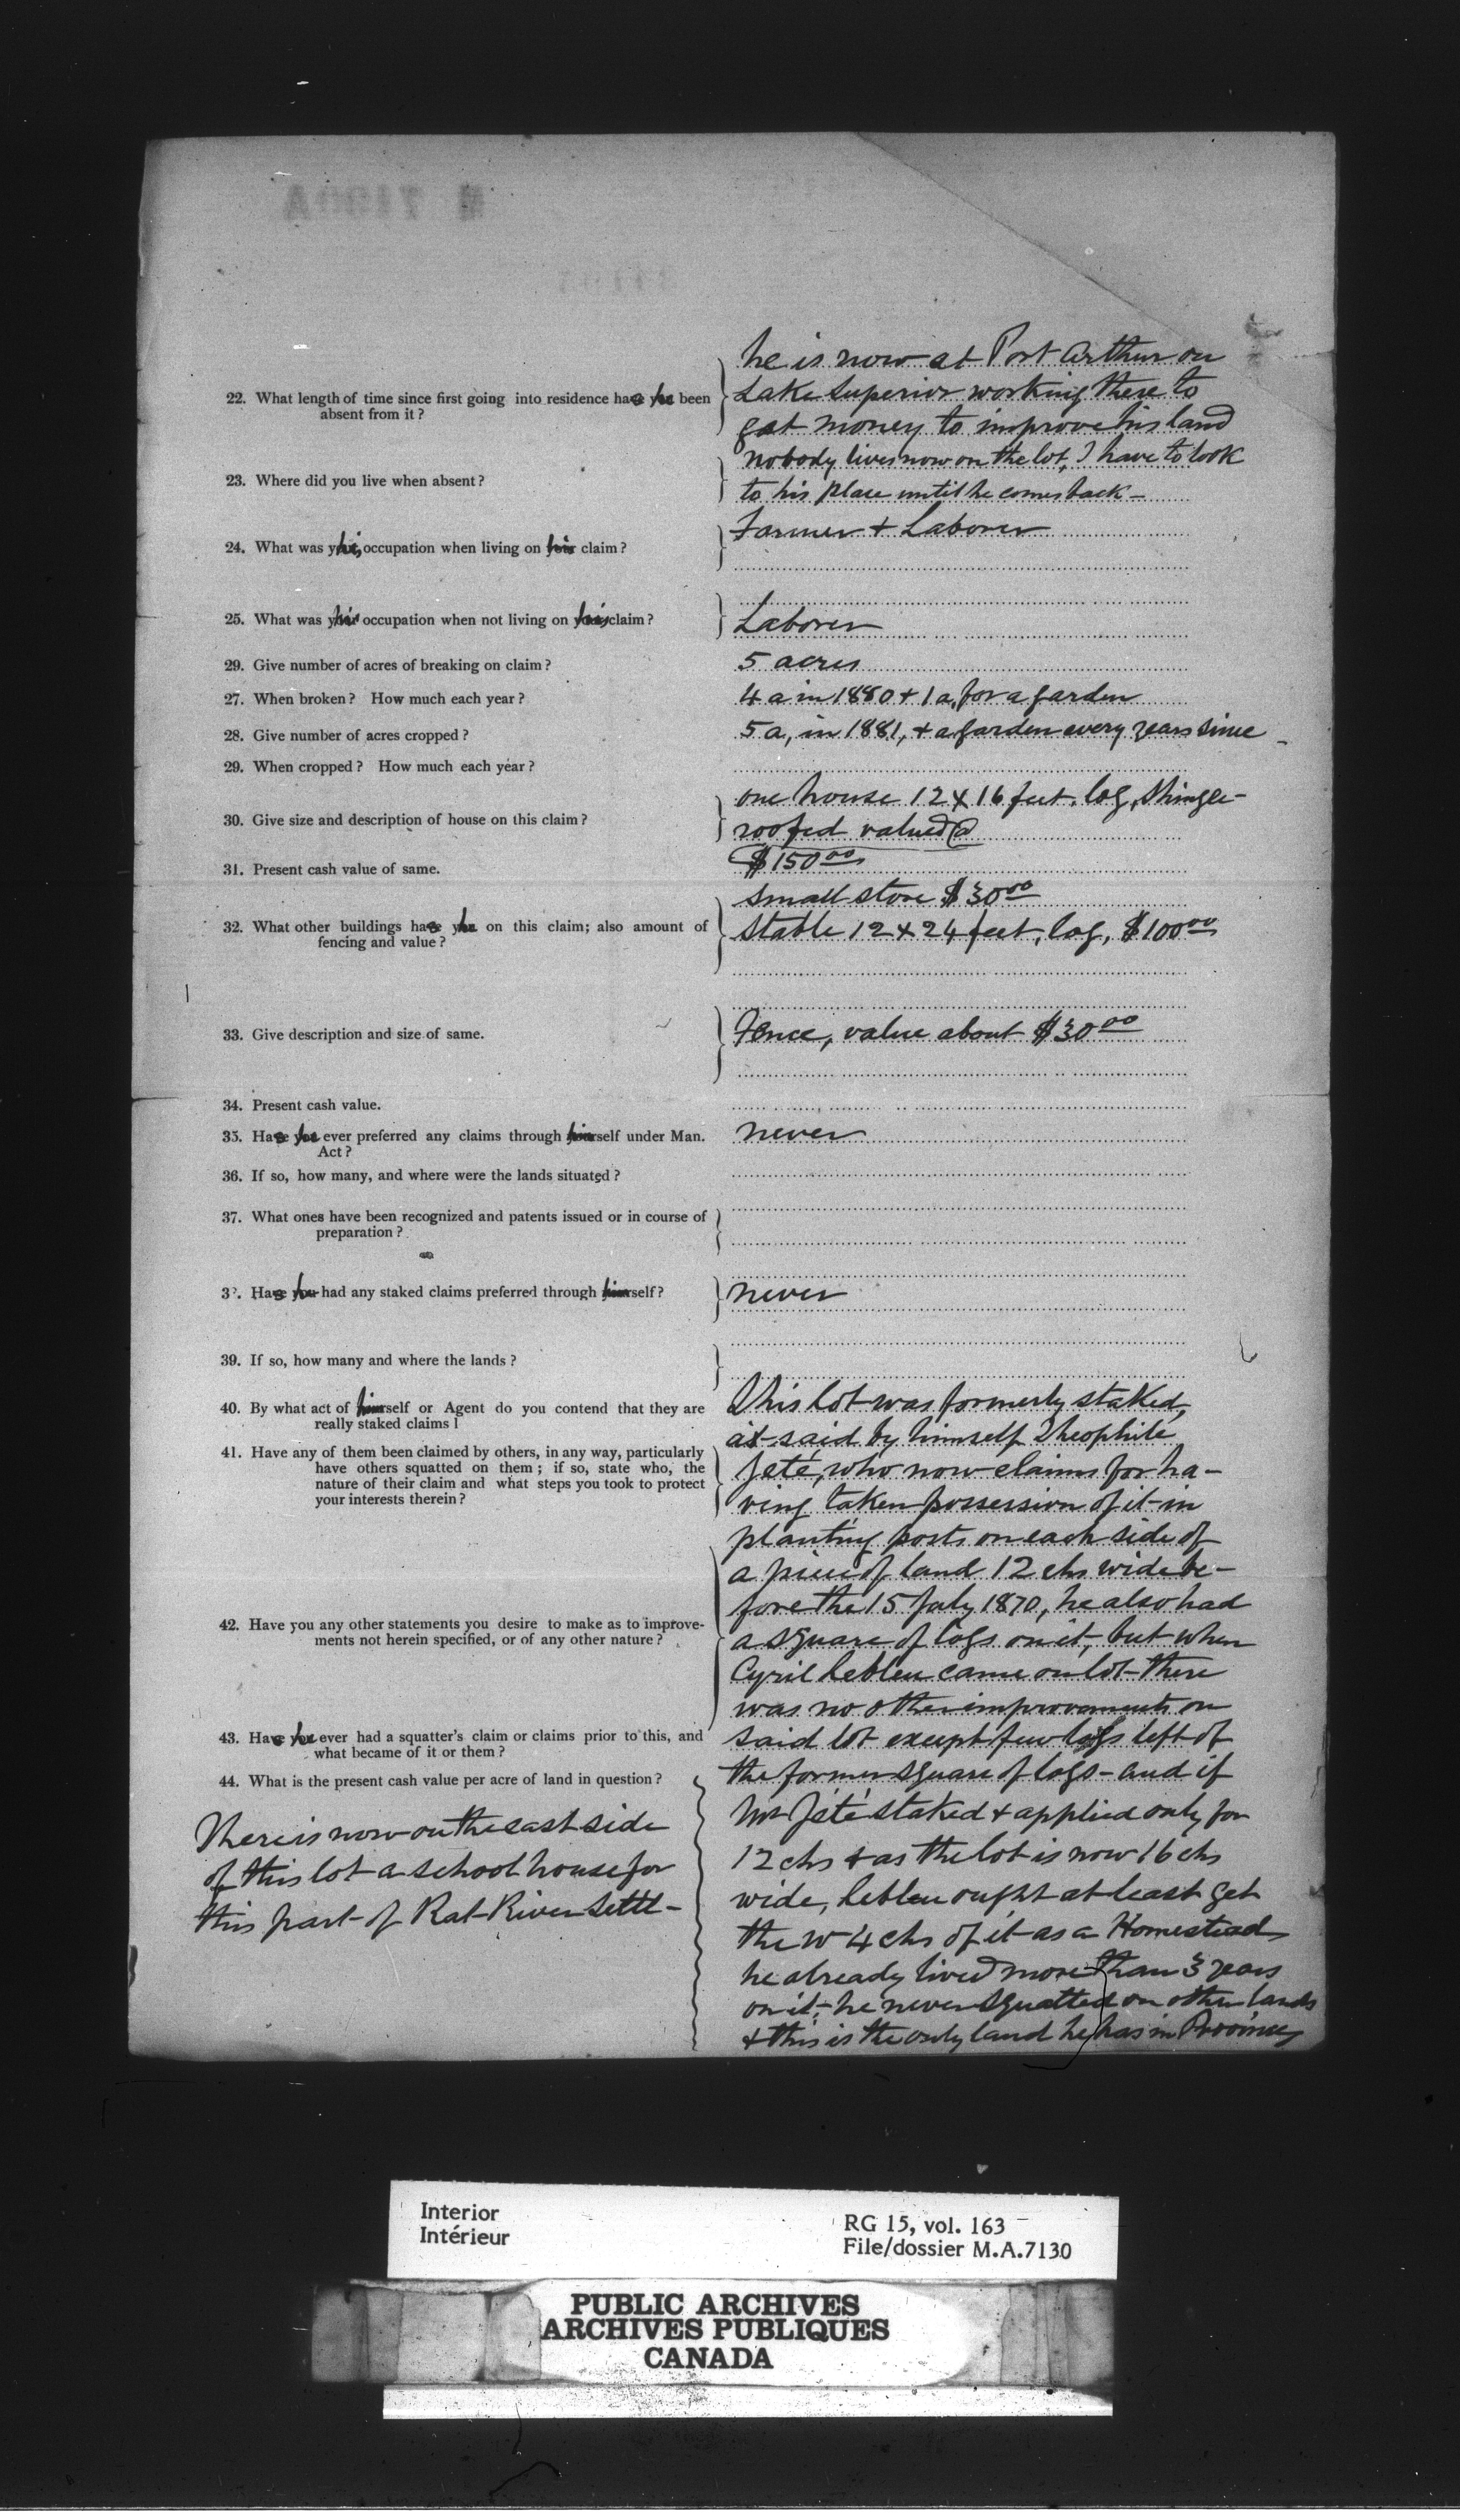 he is now at Port Arthur on
22. What length of time since first going into residence has he been
absent from it?
Lake Superior working there to
get money to improve his land
nobody lives now on the lot, I have to look
23. Where did you live when absent?
to his place until he comes back -
24. What was his occupation when living on his claim?
Farmer + Laborer
25. What was his occupation when not living on his claim?
Laborer
29. Give number of acres of breaking on claim?
5 acres
27. When broken? How much each year?
4 a in 1880 + 1 a, for a garden
28. Give number of acres cropped?
5 a, in 1881, + a garden every years since -
29. When cropped? How much each year?
30. Give size and description of house on this claim?
one house 12 x 16 feet, log, shingle-
roofed valued @
31. Present cash value of same.
$150 00
32. What other buildings has he on this claim; also amount of
fencing and value?
small store $30 00
Stable 12 x 24 feet, log, $100 00
33. Give description and size of same.
Fence, value about $30 00
34. Present cash value.
35. Has he ever preferred any claims through himself under Man.
Act?
never
36. If so, how many, and where were the lands situated?
37. What ones have been recognized and patents issued or in course of
preparation?
3 . Has he had any staked claims preferred through himself?
never
39. If so, how many and where the lands?
40. By what act of himself or Agent do you contend that they are
really staked claims
41. Have any of them been claimed by others, in any way, particularly
have others squatted on them; if so, state who, the
nature of their claim and what steps you took to protect
your interests therein?
42. Have you any other statements you desire to make as to improve-
ments not herein specified, or of any other nature?
43. Has he ever had a squatter's claim or claims prior to this, and
what became of it or them?
44. What is the present cash value per acre of land in question?
This lot was formerly staked,
as said by himself Theophile
Jeté, who now claims for ha-
ving taken possession of it in
planting posts on each side of
a piece of land 12 chs wide be-
fore the 15 July 1870, he also had
a square of logs on it, but when
Cyril Lebleu came on lot there
was no other improvements on
said lot except few logs left of
the former square of logs - and if
Mr Jété staked + applied only for
12 chs + as the lot is now 16 chs
wide, Lebleu ought at least get
the W 4 chs of it as a Homestead
he already lived more than 3 years
on it - he never squatted on other lands
+ this is the only land he has in Province
There is now on the east side
of this lot a school house for
this part of Rat River Settl-
Interior
Intérieur
RG 15, vol. 163
File/dossier M.A.7130
PUBLIC ARCHIVES
ARCHIVES PUBLIQUES
CANADA